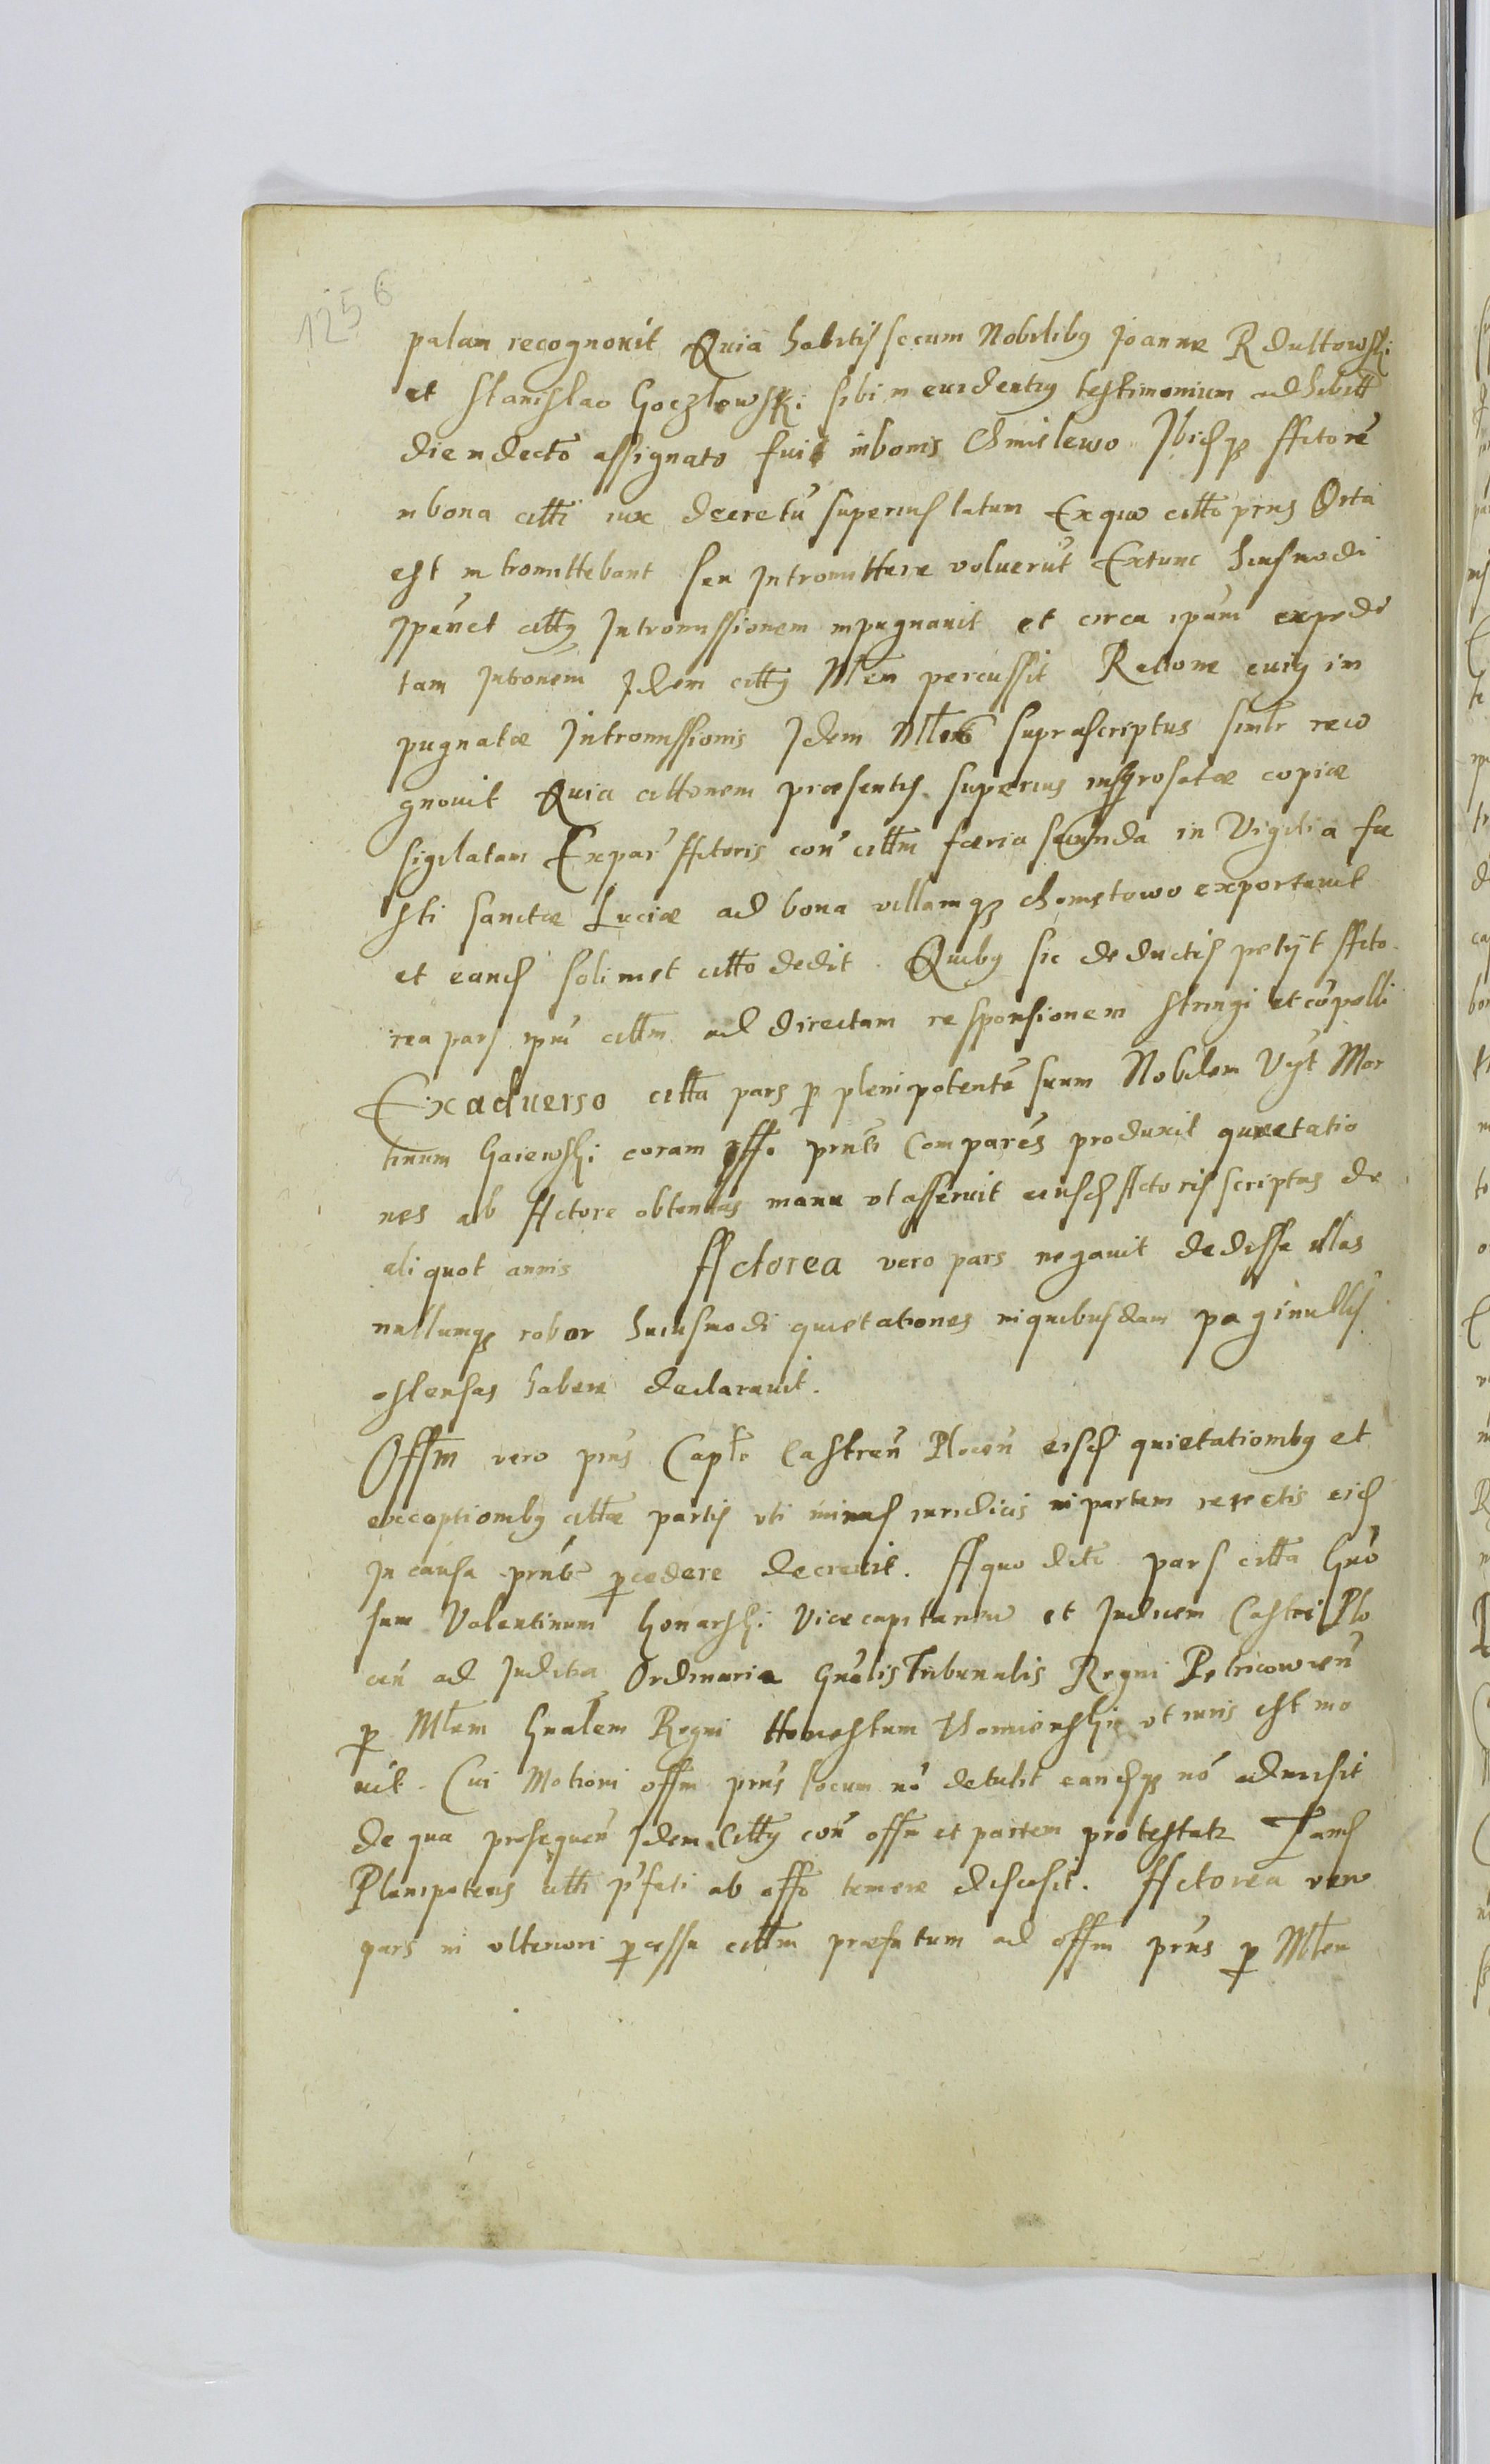 1256
palam recognovit Quia habitis secum Nobilibus Joanne Rdultowski
et Stanislao Goczlowski sibi in euidentius testimonium adhibitt
die in decto assignato fuit in bonis Chmilewo Ibidq Actorē
in bona citti iux decretū superius latum Ex quo citto prns Orta
est intromittebant seu Intromittere voluerūt Extunc huiusmodi
cittus Intromissionem inpugnauit et circa ipam expedi
tam Intronem Idem cittus Mlem percussit Ratione cuius im
pugnatæ Intromissionis Idem suprascriptus simlr reco
gnouit Quia cittonem præsentis superius ingrosatæ copiæ
sigilatam Ex par Actoris con cittm feria secunda in Vigilia fe
sti sanctæ Luciæ ad bona villamq Chometowo exportauit
et eand solimet citto dedit. Quibus sic deductis petijt Acto
rea pars ipm cittm ad directam responsionem stringi et cōpelli
Ex aduerso citta pars p plenipotentē suum Nobilem Vyt Mar
tinum Gaiewski coram offo prnti Comparēs produxit quietatio
nes ab Actore obtentas manu vt asseruit eiusd Actoris scriptas de
aliquot annis Actorea vero pars negauit dedisse illas
nullumq robor huiusmodi quietationes in quibusdam paginullis
ostensas habere declarauit.
Offm vero prns Capło Castren Plocen eisd quietationibus et
exceptionibus cittæ partis vti minus iuridicis in partem reiectis eid
in causa prnti pcedere decreuit. A quo dicti pars citta Gnō
sum Valentinum Gonarski Vicecapitaneū et Iudicem Castri Plo
cen ad Iuditia Ordinaria Gnalis Tribunalis Regni Petricowien
p Mlem Gnalem Regni Honestum vt iuris est mo
uit. Cui Motioni offm prns locum nō detulit eandq nō admisit
de qua prosequen Idem Cittus con offm et partem protestatr Tand
Plenipotens citti pfati ab offo temere discesit. Actorea vero
pars in vlteriori pcessu cittm præfatum ad offm prns p Mlem